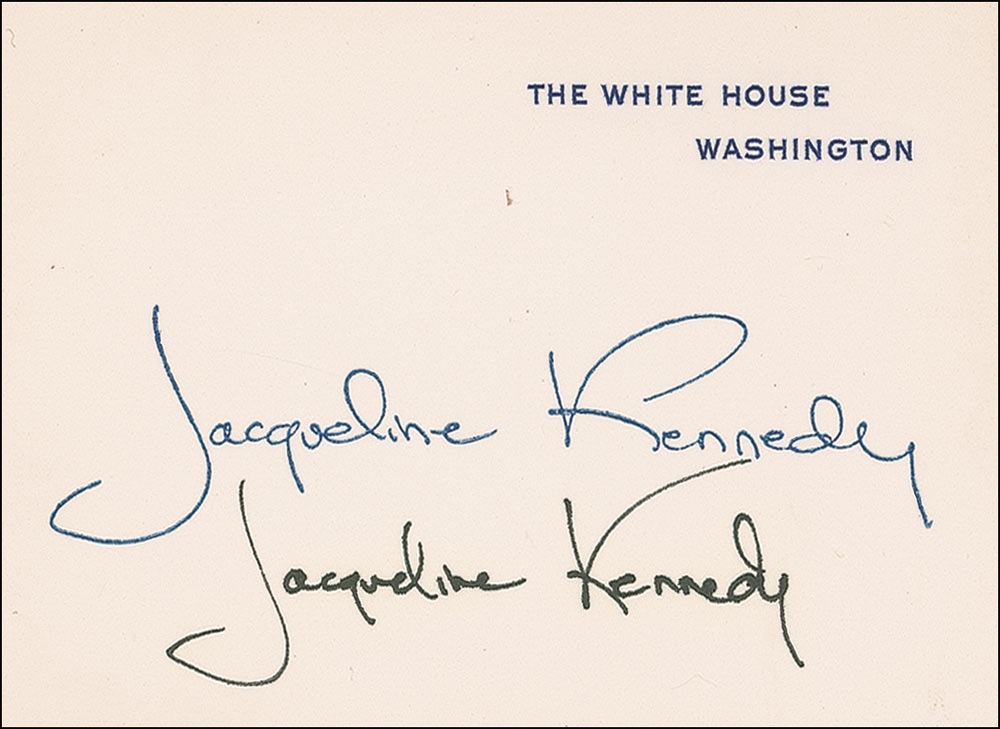 THE WHITE HOUSE
WASHINGTON
Jacqueline Kennedy
Jacqueline Kennedy